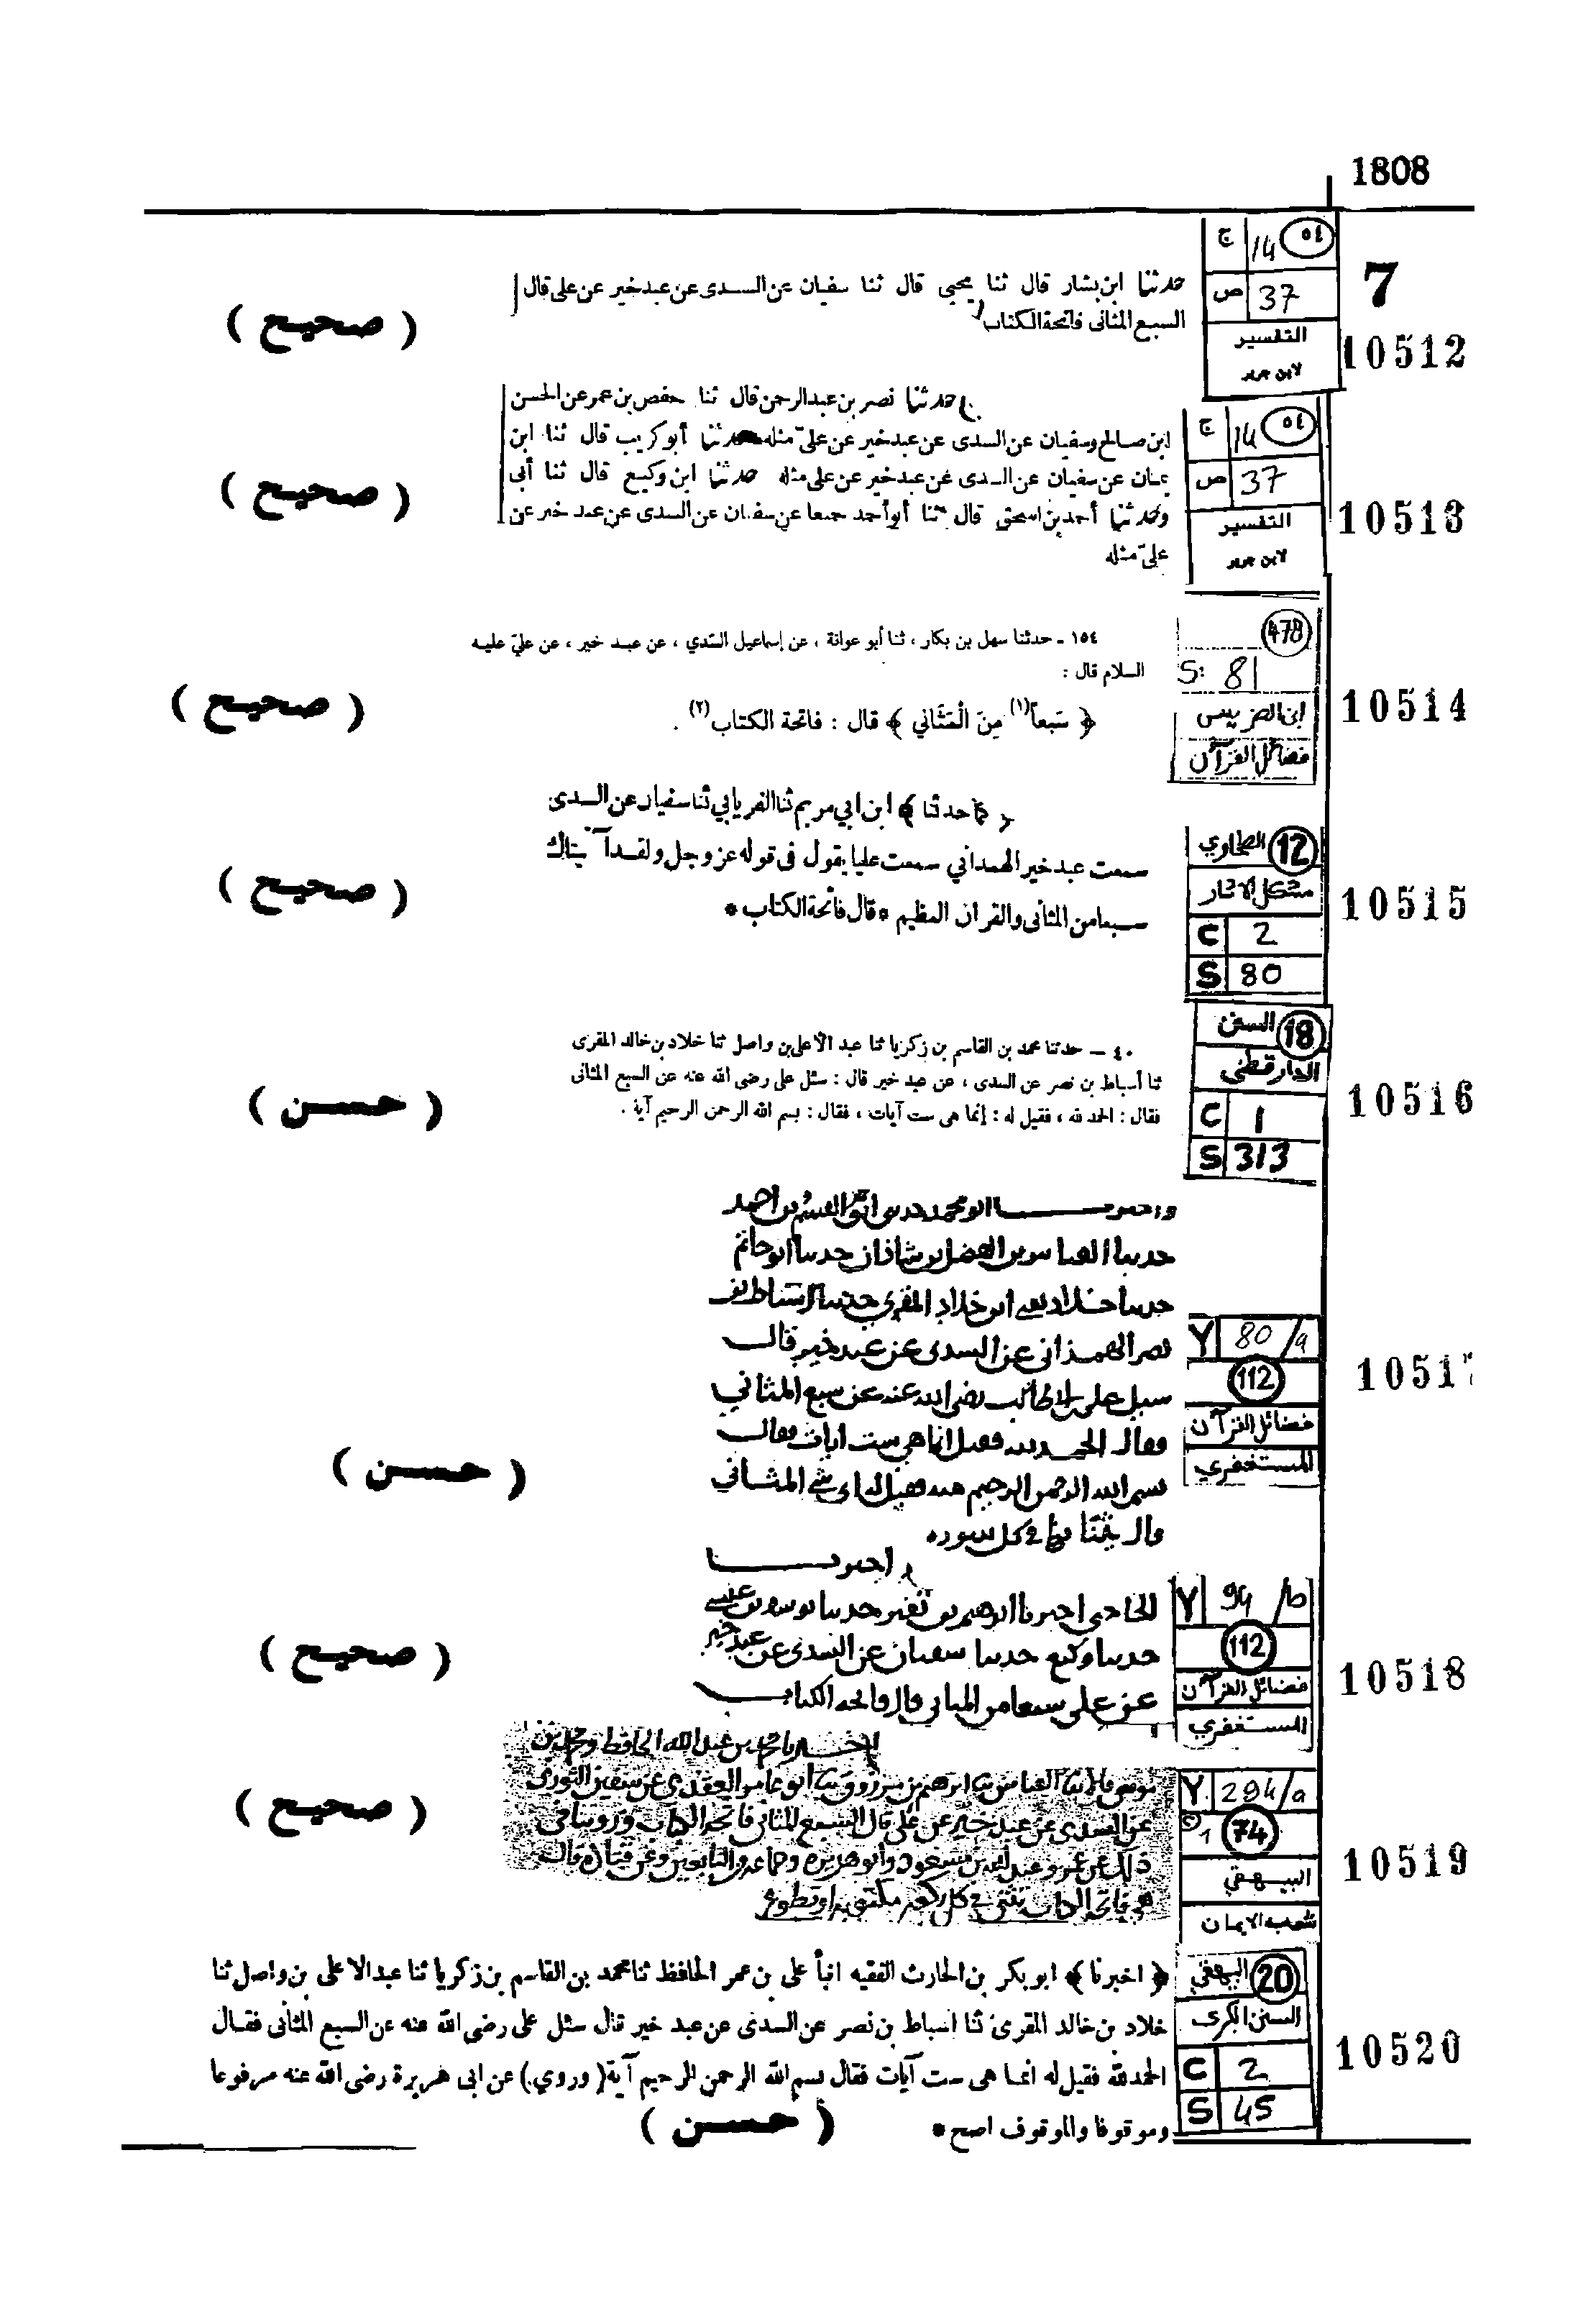 1808
7
ج 14 ٥٤
ص 37
التفسير
لابن جرير
10512
حدثنا ابن بشار قال ثنا يحيى قال ثنا سفيان عن السدى عن عبد خير عن على قال
السبع المثانى فاتحة الكتاب
( صحيح )
ج 14 ٥٤
ص 37
التفسير
لابن جرير
10513
حدثنا نصر بن عبد الرحمن قال ثنا حفص بن عمر عن الحسن
ابن صالح وسفيان عن السدى عن عبد خير عن علىّ مثله حدثنا أبو كريب قال ثنا ابن
يمان عن سفيان عن السدى عن عبد خير عن على مثله حدثنا ابن وكيع قال ثنا أبى
وحدثنا أحمد بن اسحق قال ثنا أبو أحمد جميعا عن سفيان عن السدى عن عبد خير عن
علىّ مثله
( صحيح )
478
S: 81
ابن الضريس
فضائل القرآن
10514
١٥٤ - حدثنا سهل بن بكار ، ثنا أبو عوانة ، عن إسماعيل السّدي ، عن عبد خير ، عن عليّ عليه
السلام قال :
﴿ سَبعاً(١) مِنَ الْمَثَاني ﴾ قال : فاتحة الكتاب(٢) .
( صحيح )
12 الطحاوي
مشكل الاثار
C 2
S 80
10515
﴿ كما حدثنا ﴾ ابن ابي مريم ثنا الفريابي ثنا سفيان عن السدى
سمعت عبد خير الهمداني سمعت عليا يقول فى قوله عز وجل ولقد آتيناك
سبعا من المثانى والقرآن العظيم * قال فاتحة الكتاب *
( صحيح )
18 السنن
الدارقطني
C 1
S 313
10516
٤٠ - حدثنا محمد بن القاسم بن زكريا ثنا عبد الأعلى بن واصل ثنا خلاد بن خالد المقرى
ثنا أسباط بن نصر عن السدى ، عن عبد خير قال : سئل على رضى الله عنه عن السبع المثانى
فقال : الحمد لله ، فقيل له : إنما هى ست آيات ، فقال : بسم الله الرحمن الرحيم آية .
( حسن )
Y 80/a
112
فضائل القرآن
المستغفري
10517
ابو محمد حدثنى القسم بن احمد
حدثنا العباس بن الفضل بن شاذان حدثنا ابو حاتم
حدثنا خلاد يعنى ابن خلاد المقرى حدثنا اسباط بن
نصر الهمذانى عن السدى عن عبد خير قال
سيل على بن ابى طالب رضى الله عنه عن سبع المثاني
فقال الحمد لله فقيل انما هى ست ايات فقال
بسم الله الرحمن الرحيم فقيل له اى شى المثاني
قال في كل سوره
( حسن )
Y 94/b
112
فضائل القرآن
المستغفري
10518
اخبرنا
اخبرنا ابرهيم بن حدثنا
حدثنا وكيع حدثنا سفيان عن السدى عن عبد خير
عن على سبعا من المثاني قال فاتحه الكتاب
( صحيح )
Y 294/a
1 74
البيهقي
شعب الايمان
10519
اخبرنا محمد بن عبد الله الحافظ ومحمد بن
موسى قالا ثنا ابو العباس ثنا ابرهيم بن مرزوق ثنا ابو عامر العقدى عن سفين الثورى
عن السدى عن عبد خير عن على قال السبع المثانى فاتحة الكتاب وروينا فى
ذلك عن عمر وعبد الله بن مسعود وابو هريره وجماعه من التابعين وعن قتاده قال
هى فاتحة الكتاب تثنى في كل ركعه مكتوبه او تطوع
( صحيح )
20 البيهقي
السنن الكبرى
C 2
S 45
10520
﴿ اخبرنا ﴾ ابو بكر بن الحارث الفقيه انبأ على بن عمر الحافظ ثنا محمد بن القاسم بن زكريا ثنا عبد الاعلى بن واصل ثنا
خلاد بن خالد المقرئ ثنا اسباط بن نصر عن السدى عن عبد خير قال سئل على رضى الله عنه عن السبع المثانى فقال
الحمد لله فقيل له انما هى ست آيات فقال بسم الله الرحمن الرحيم آية ( وروي ) عن ابى هريرة رضى الله عنه مرفوعا
وموقوفا والموقوف اصح *
( حسن )